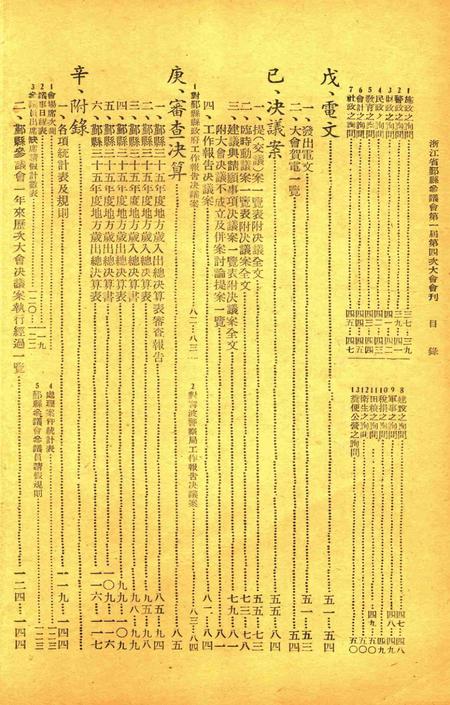 浙江省鄞縣參議會第一屆第四次大會會刊 目錄
1 施政之詢問……三七—三九
2 警政之詢問……三九—四一
3 財政之詢問……四一
4 民政之詢問……四二
5 教育之詢問……四三
6 會計之詢問……四四
7 社政之詢問……四五—四七
8 建設之詢問……四七—四八
9 軍事之詢問……四八
10 稅捐之詢問……四九
11 田糧之詢問……四九—五〇
12 衛生之詢問……五〇
13 公營之詢問……五〇
戊、電文……五一—五四
一、發出電文……五一—五三
二、大會賀電一覽……五四
己、決議案
一、提(交議)案一覽表附決議全文……五五—七三
二、臨時動議案一覽表附決議案全文……七三—七八
三、建議與請願事項決議案一覽表附決議案全文……七九—八一
附大會決議不成立及併案討論提案一覽
四、工作報告決議案……八二—八四
1 對鄞縣縣政府工作報告決議案……八二—八三
2 對寧波警察局工作報告決議案……八三—八四
庚、審查決算……八五
一、鄞縣三十五年度地方歲入出總決算表審查報告……八五—九四
二、鄞縣三十五年度地方歲入總決算書……九五—九八
三、鄞縣三十五年度地方歲入總決算表……九八—九九
四、鄞縣三十五年度地方歲出總決算書……九九—一〇九
五、鄞縣三十五年度地方歲出總決算表……一〇九—一一六
六、鄞縣三十五年度地方歲出總決算表……一一六—一一七
辛、附錄……一一九—一四四
一、各項統計表及規則
1 會場席次圖……一一九
2 議事日程表
3 參議員出席缺席請假計數表……一二〇—一二二
4 處理案件統計表……一二三
5 鄞縣參議會參議員請假規則……一二三
二、鄞縣參議會一年來歷次大會決議案執行經過一覽……一二四—一四四